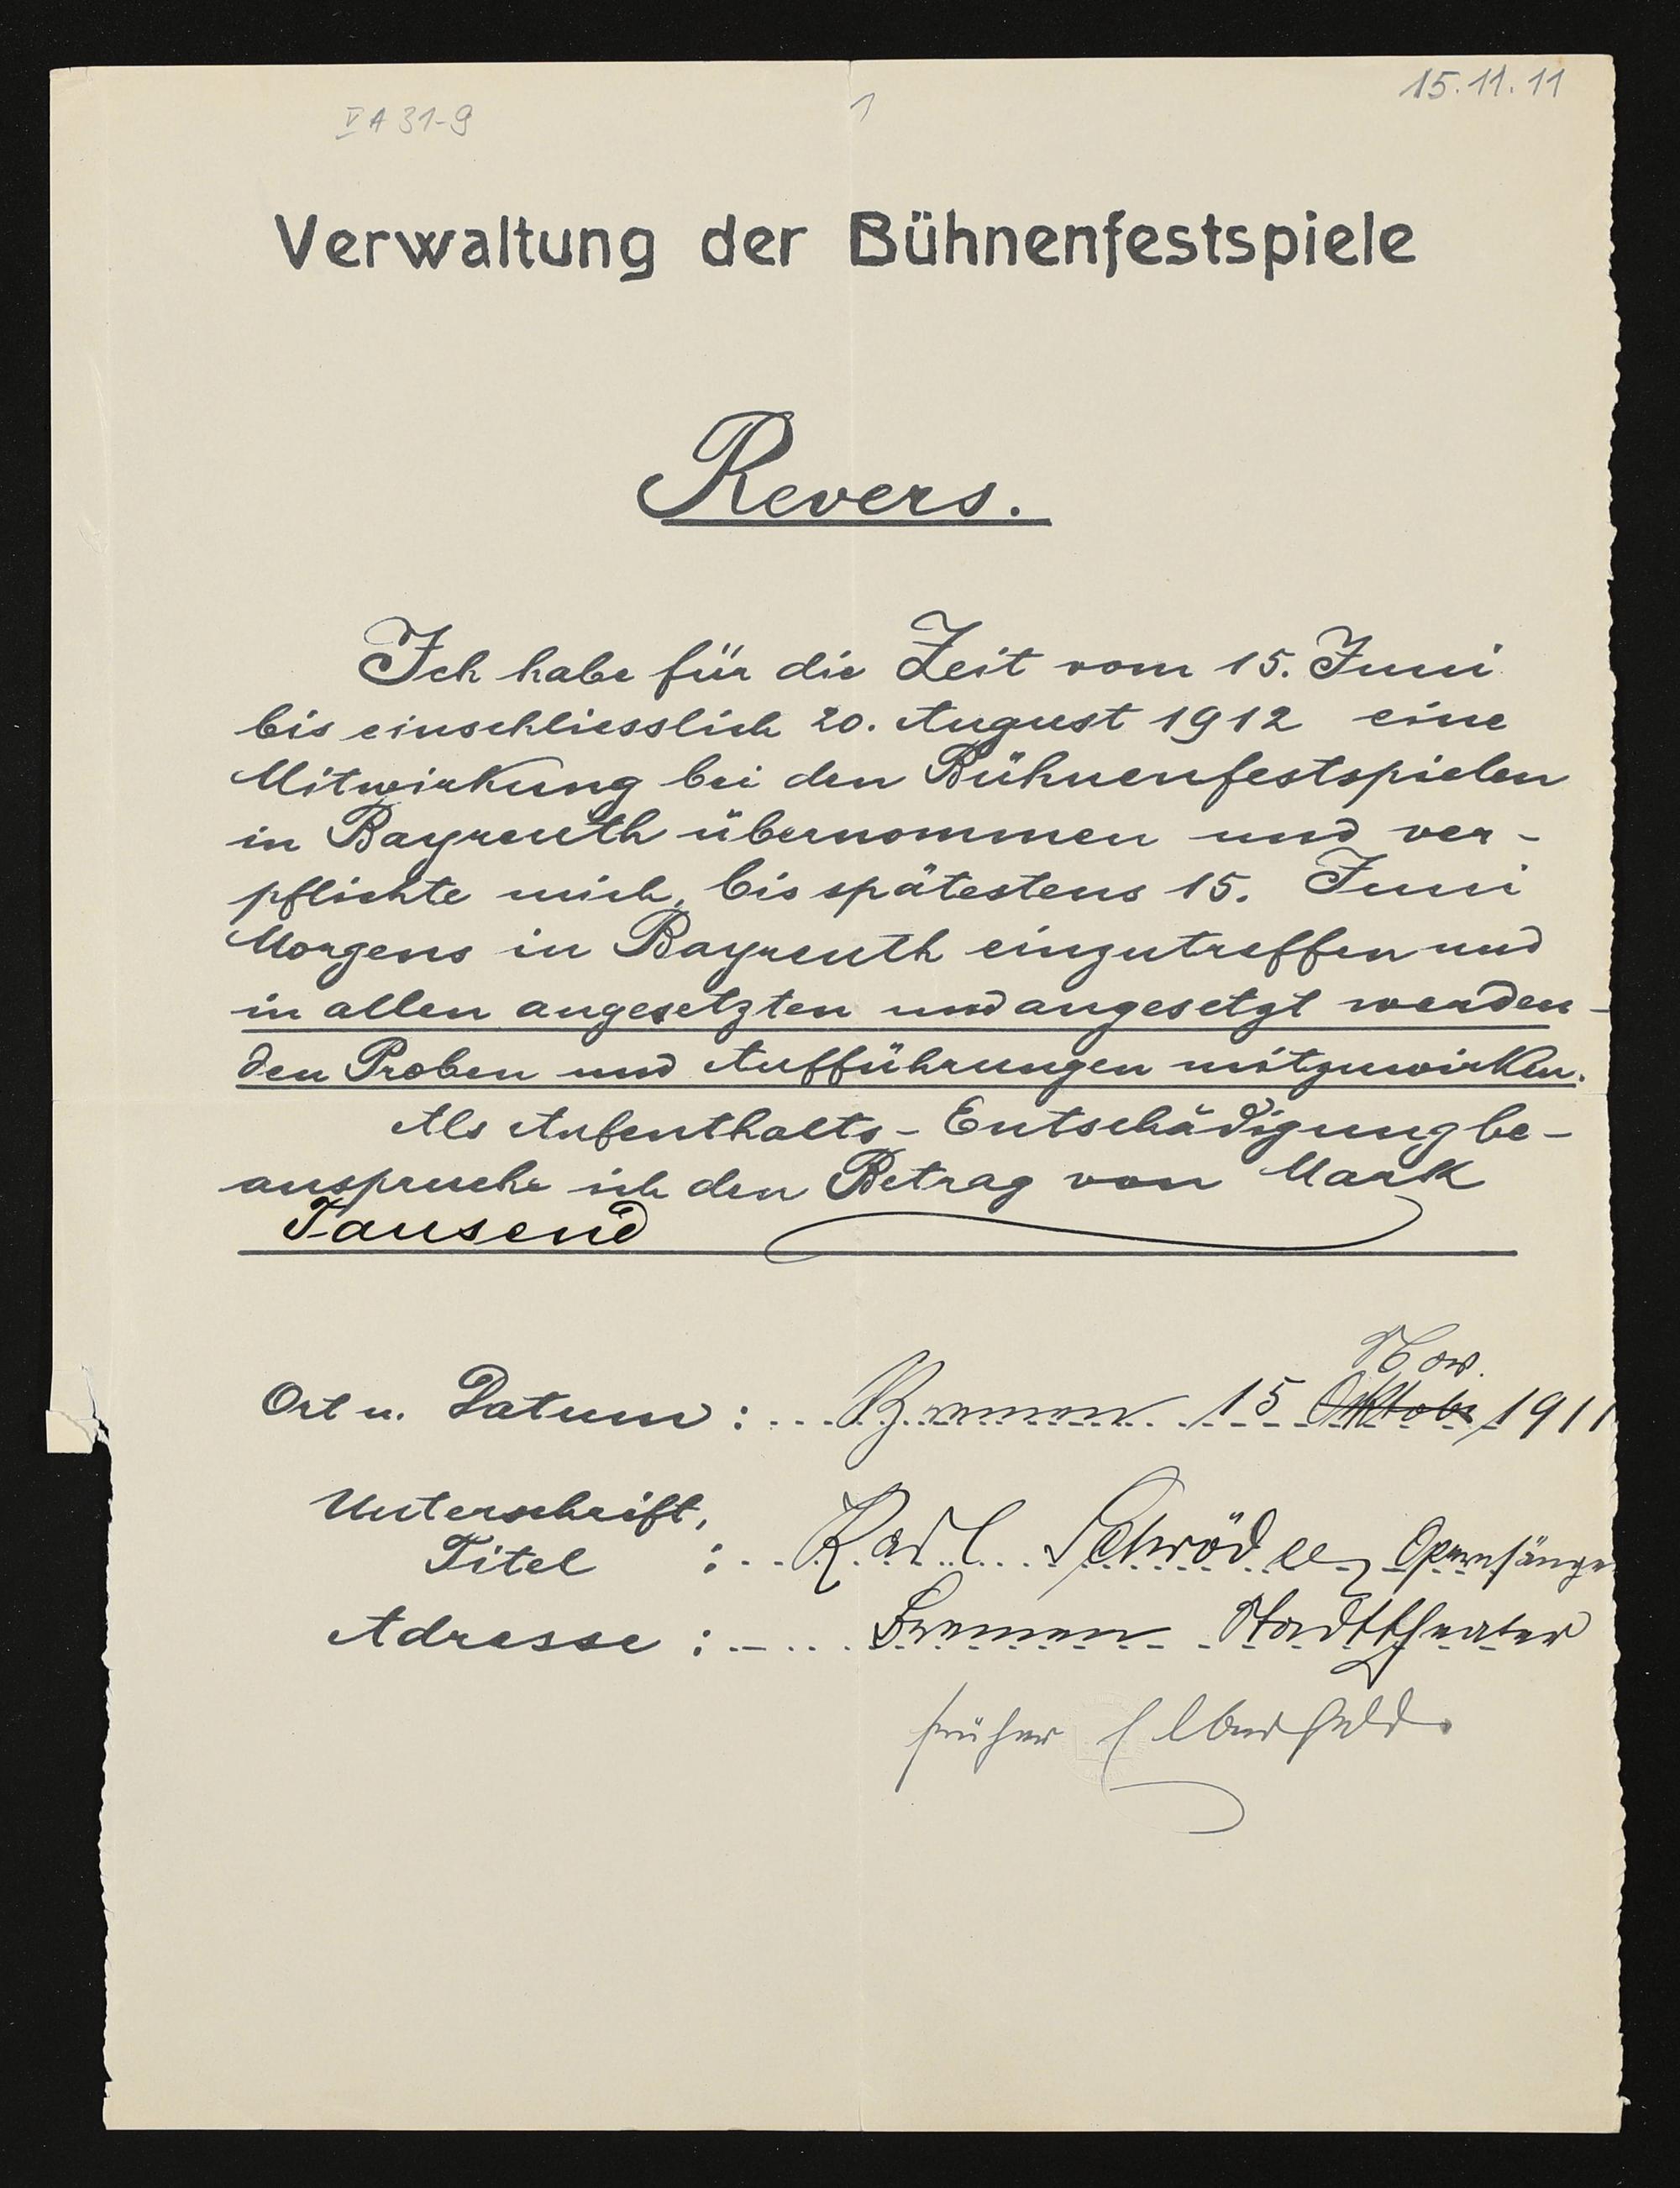 V A 31-9
1
15.11.11
Verwaltung der Bühnenfestspiele
Revers.
Ich habe für die Zeit vom 15. Juni
bis einschliesslich 20. August 1912 eine
Mitwirkung bei den Bühnenfestspielen
in Bayreuth übernommen und ver-
pflichte mich, bis spätestens 15. Juni
Morgens in Bayreuth einzutreffen und
in allen angesetzten und angesetzt werden-
den Proben und Aufführungen mitzuwirken.
Als Aufenthalts-Entschädigung be-
anspruche ich den Betrag von Mark
Tausend
Nov.
Ort u. Datum: Bremen 15 Oktobr 1911
Unterschrift,
Titel : Karl Schröder, Opernsänge
Adresse: Bremen Stadttheater
früher Elberfeld.